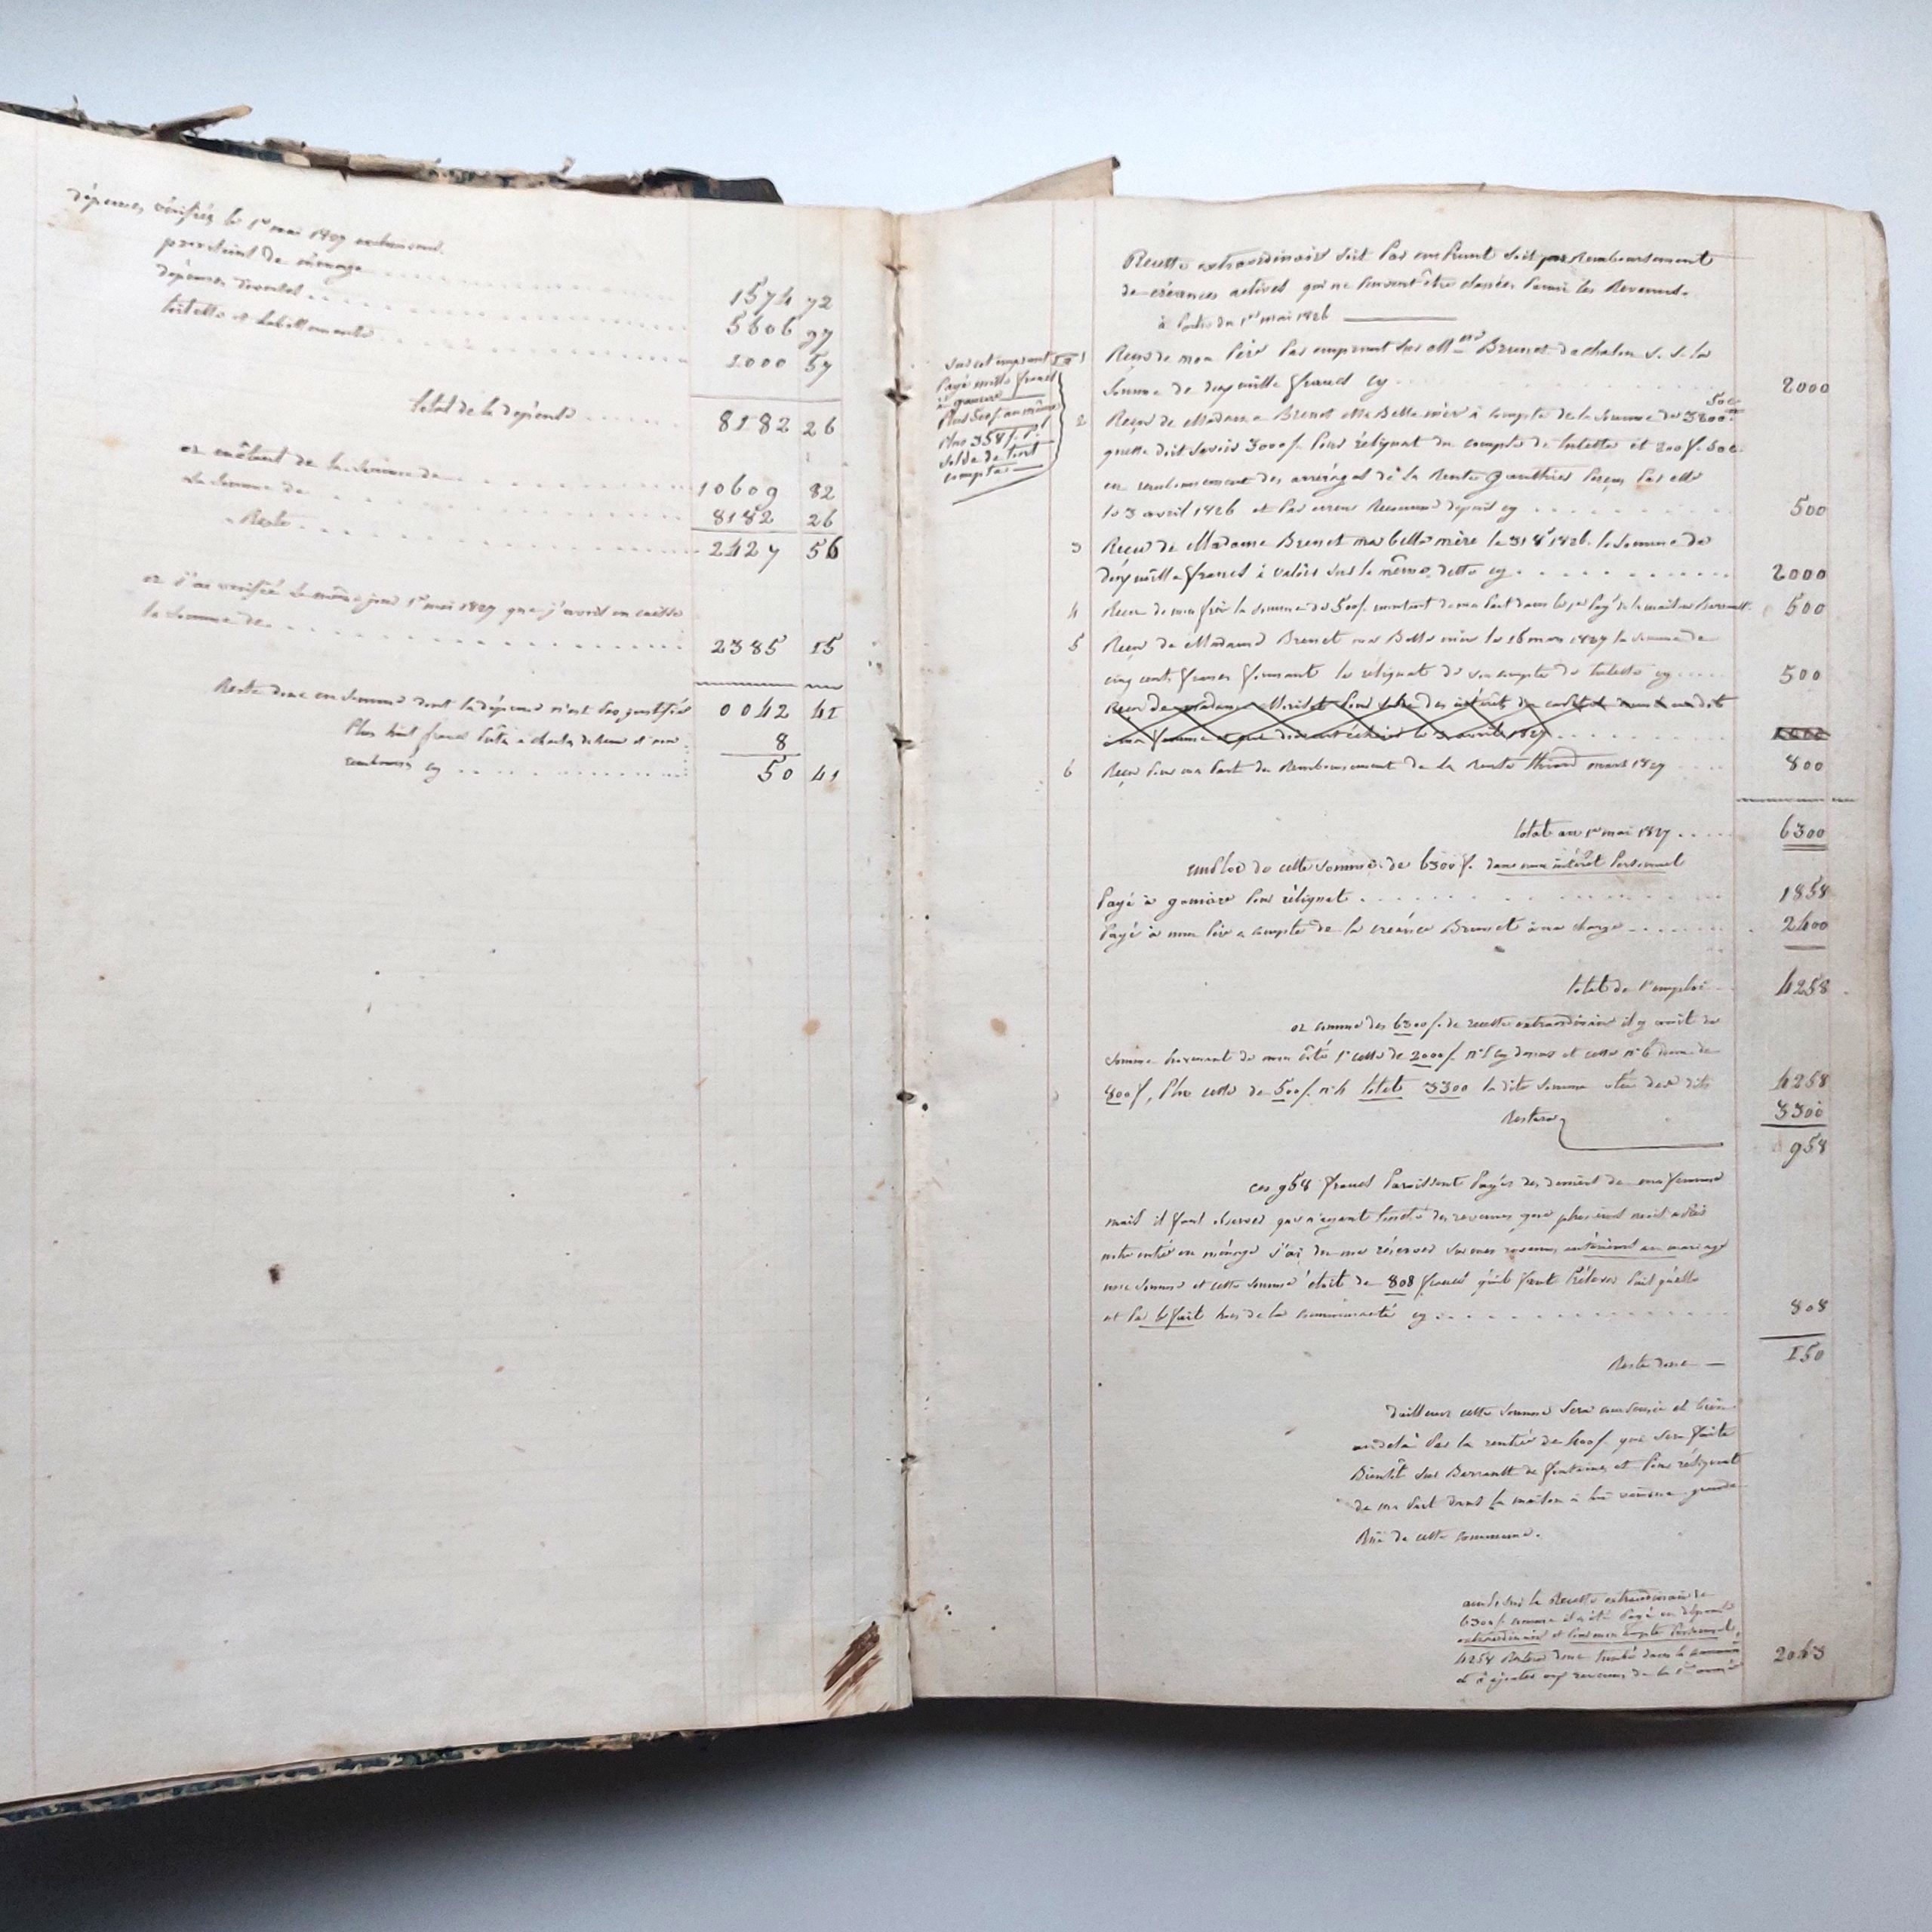 dépenses vérifiées le 1er mai 1827
de ménage
dépenses
toilette et habillements
1574 72
5606 97
1000 57
total de la dépense 8182 26
or ôtant de la somme de 10609 82
La Somme de 8182 26
Reste 2427 56
or j'ai vérifié le même jour 1er mai 1827 que j'avois en caisse
la Somme de 2385 15
Reste donc en Somme dont la dépense n'est pas justifiée 0042 41
Plus huit francs 8
remboursés cy 50 41
Recette extraordinaire soit par emprunt soit par Remboursement
de créances actives qui ne peuvent être classées parmi les Revenus.
à partir du 1er mai 1826
Sur cet emprunt
Payé mille francs
à
Plus 500 f. au même
Plus 358 f. P.
Solde de tout
compte
1 Reçu de mon Père par emprunt sur Mme Brunet de chalon S. S. la
Somme de deux mille francs cy 2000
50 c
2 Reçu de Madame Brenot Ma Belle mère à compte de la Somme de 3200
qu'elle doit savoir 3000 f. pour réliquat du compte de tutelle et 200 f. 50 c.
en remboursement des arrérages de la rente Gauthier perçus par elle
le 3 avril 1826 et par erreur Reconnue depuis cy 500
3 Reçu de Madame Brenot ma belle mère le 31 8e 1826. la Somme de
deux mille francs à valoir sur la même dette cy 2000
4 Reçu de mon frère la somme de 500 f. montant de ma part dans le 1er Paye de la maison 500
5 Reçu de Madame Brenot ma Belle mère le 16 mars 1827 la Somme de
cinq cents francs formant le réliquat de son compte de tutelle cy 500
Reçu de madame pour des intérêts du
à ma femme et que devient échoir le 3 avril 1827
6 Reçu pour ma Part du Remboursement de la rente mars 1827 800
total au 1er mai 1827 6300
emploi de cette somme de 6300 f. dans mon intérêt Personnel
Payé à pour réliquat 1858
Payé à mon Père a compte de la créance Brunet à ma charge 2400
total de l'emploi 4258
or comme des 6300 f. de recette extraordinaire il y avoit de
somme provenant de mon côté 1° celle de 2000 f. n° 1 cy dessus et celle n° 6 de
800 f, Plus celle de 500 f. n° 4 total 3300 la dite Somme ôtée des dits 4258
3300
Restera 958
ces 958 francs Paroissent Payés des deniers de ma femme
mais il faut observer que n'ayant touché des revenus que plusieurs mois après
notre entrée en ménage j'ai du me réserver sur mes revenus antérieurs au mariage
une somme et cette somme étoit de 808 francs qu'il faut Prélever Puisqu'elle
est par le fait hors de la communauté cy 808
Reste donc 150
D'ailleurs cette somme sera compensée et bien
audelà par la rentrée de 400 f. qui sera faite
Bientôt sur Berrault de fontaines et pour réliquat
de ma part dans la maison à lui vendue grande
Rue de cette commune.
la Recette extraordinaire de
6300 f. comme il a été Payé en dépense
extraordinaire et pour mon compte Personnel,
4258 Restera donc tombé dans la
et à ajouter aux revenus de la 1ere année 2043